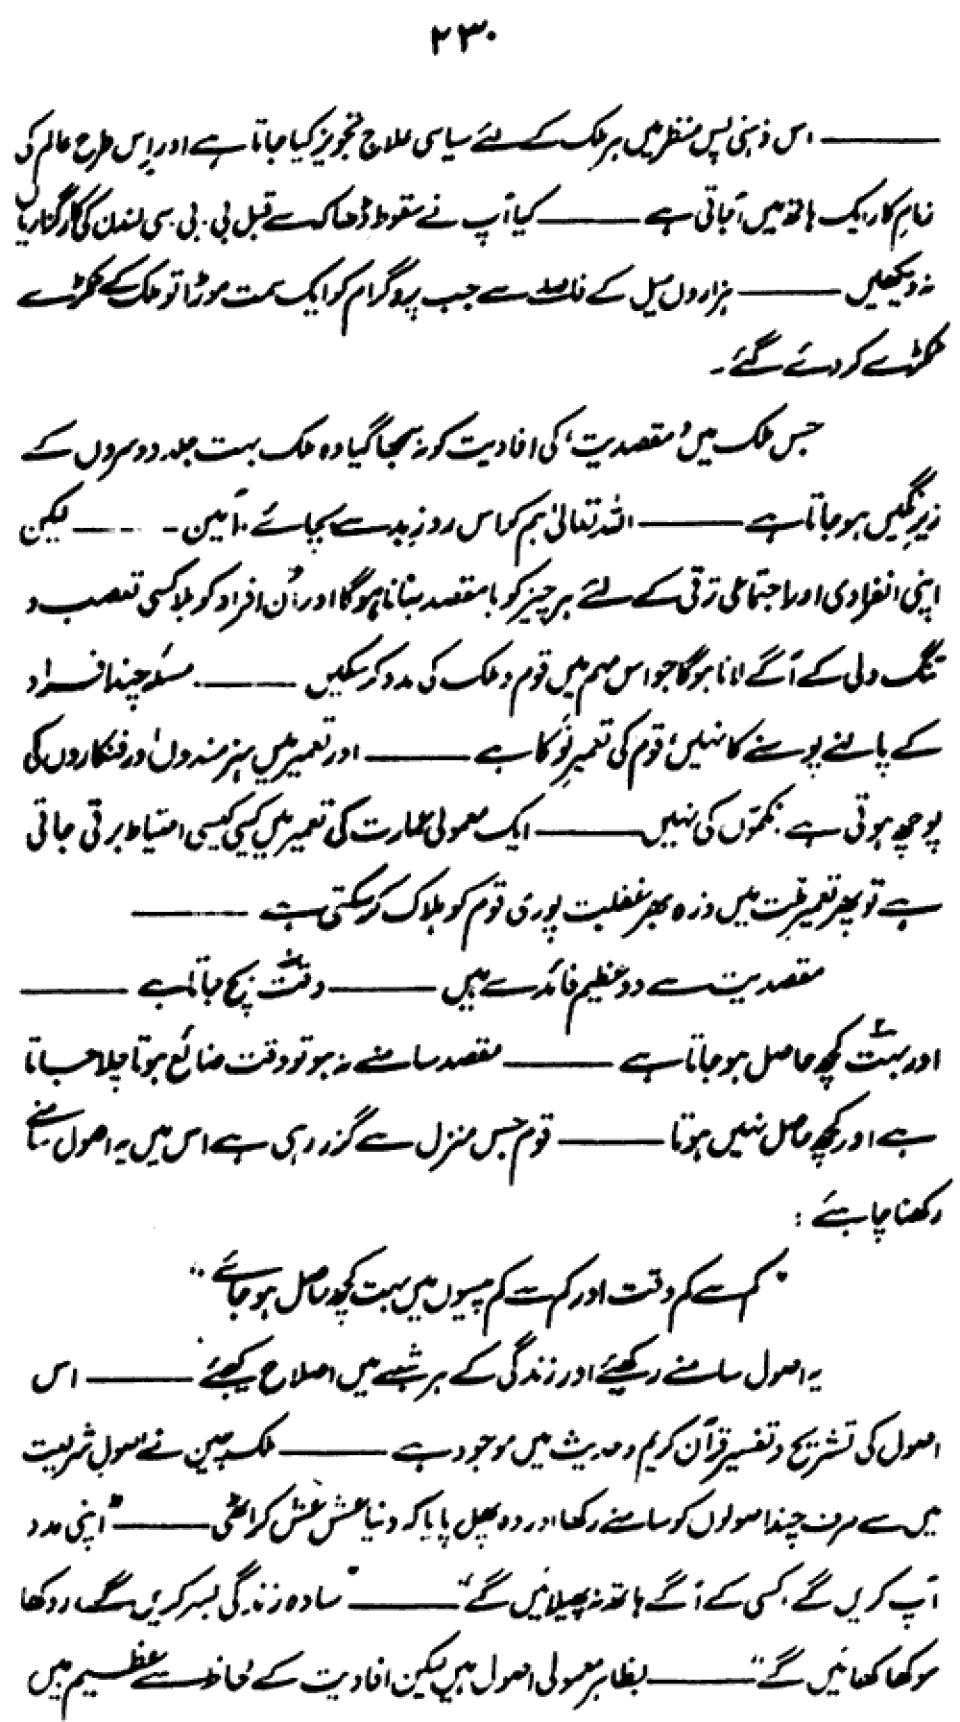 ۲۳۰
——— اس ذہنی پس منظر میں ہر ملک کے لئے سیاسی علاج تجویز کیا جاتا ہے اور اِس طرح عالم کی
زمامِ کار ایک ہاتھ میں آجاتی ہے ——— کیا آپ نے سقوط ڈھاکہ سے قبل بی. بی. سی لندن کی کارگزاریاں
نہ دیکھیں ——— ہزاروں میل کے فاصلہ سے جب پروگرام کو ایک سمت موڑا تو ملک کے ٹکڑے
ٹکڑے کر دئے گئے۔
جس ملک میں ’مقصدیت‘ کی افادیت کو نہ سمجھا گیا وہ ملک بہت جلد دوسروں کے
زیرِ نگیں ہو جاتا ہے ——— اللہ تعالیٰ ہم کو اس روزِ بد سے بچائے آمین۔ ——— لیکن
اپنی انفرادی اور اجتماعی ترقی کے لئے ہر چیز کو بامقصد بنانا ہوگا اور اُن افراد کو بلا کسی تعصب و
تنگ دلی کے آگے لانا ہوگا جو اس مہم میں قوم و ملک کی مدد کر سکیں ——— مسئلہ چند افراد
کے پالنے پوسنے کا نہیں، قوم کی تعمیرِ نَو کا ہے ——— اور تعمیر میں ہنرمندوں اور فنکاروں کی
پوچھ ہوتی ہے، نکموں کی نہیں ——— ایک معمولی عمارت کی تعمیر میں کیسی کیسی احتیاط برتی جاتی
ہے تو پھر تعمیرِ ملّت میں ذرہ بھر غفلت پوری قوم کو ہلاک کر سکتی ہے ———
مقصدیت سے دو عظیم فائدے ہیں ——— وقت بچ جاتا ہے ———
اور بہت کچھ حاصل ہو جاتا ہے ——— مقصد سامنے نہ ہو تو وقت ضائع ہوتا چلا جاتا
ہے اور کچھ حاصل نہیں ہوتا ——— قوم جس منزل سے گزر رہی ہے اس میں یہ اصول سامنے
رکھنا چاہئے :
"کم سے کم وقت اور کم سے کم پیسوں میں بہت کچھ حاصل ہو جائے"
یہ اصول سامنے رکھیئے اور زندگی کے ہر شعبے میں اصلاح کیجئے ——— اس
اصول کی تشریح و تفسیر قرآن کریم و حدیث میں موجود ہے ——— ملک چین نے اصولِ شریعت
میں سے صرف چند اصولوں کو سامنے رکھا اور وہ پھل پایا کہ دنیا عش عش کر اٹھی ——— "اپنی مدد
آپ کریں گے، کسی کے آگے ہاتھ نہ پھیلائیں گے" ——— "سادہ زندگی بسر کریں گے، روکھا
سوکھا کھائیں گے" ——— بظاہر معمولی اصول ہیں لیکن افادیت کے لحاظ سے عظیم ہیں